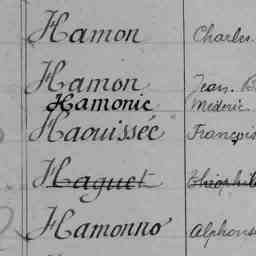 Hamon Charles
Hamon Jean. B
Hamonic Médéric
Haouissée François
Haguet Théophile
Hamonno Alphonse